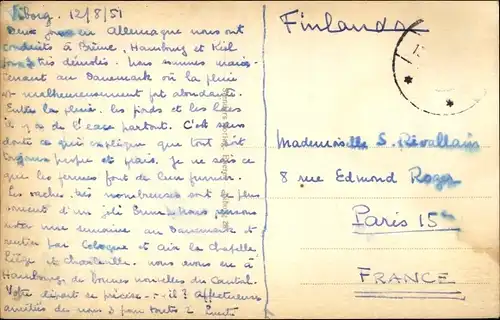 Viborg. 12/8/51
Deux jours en Allemagne nous ont
conduits à Brême, Hambourg et Kiel
tous 3 très démolis. Nous sommes main-
tenant au Danemark où la pluie
est malheureusement fort abondante.
Entre la pluie, les fjords et les lacs
il y a de l'eau partout. C'est sans
doute ce qui explique que tout soit
toujours propre et frais. Je ne sais ce
que les fermes font de leur fumier.
Les vaches très nombreuses sont le plus
souvent d'un joli brun. Nous pensons
rester une semaine au Danemark et
rentrer par Cologne et Aix la chapelle
Liège et Charleville. Nous avons eu à
Hambourg de bonnes nouvelles du Cantal.
Votre départ se précise-t-il? Affectueuses
amitiés de nous 3 pour toutes 2
Finlande
Mademoiselle S. Rivallain
8 rue Edmond Roger
Paris 15e
FRANCE